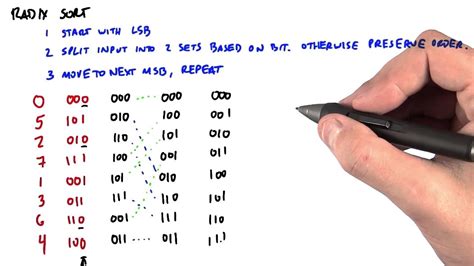 RADIX SORT
1 START WITH LSB
2 SPLIT INPUT INTO 2 SETS BASED ON BIT. OTHERWISE PRESERVE ORDER.
3 MOVE TO NEXT MSB, REPEAT
0 000 000 000 000
5 101 010 100 001
2 010 110 101 010
7 111 100 001 011
1 001 101 010 100
3 011 111 110 101
6 110 001 111 110
4 100 011 011 111